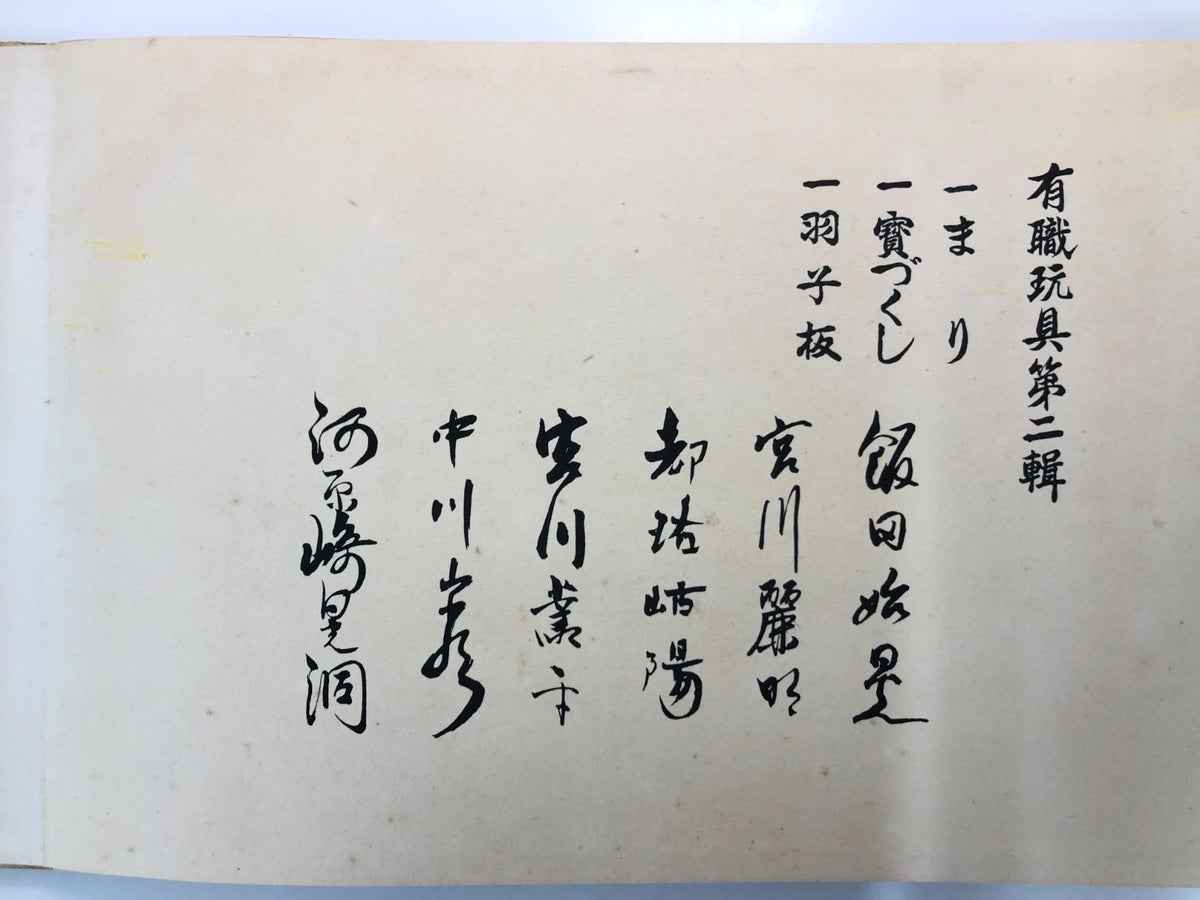 有職玩具第二輯
一まり
一寳づくし
一羽子板
飯田始晃
宮川麗明
都路岵陽
宮川薫
中川
河原崎晃洞